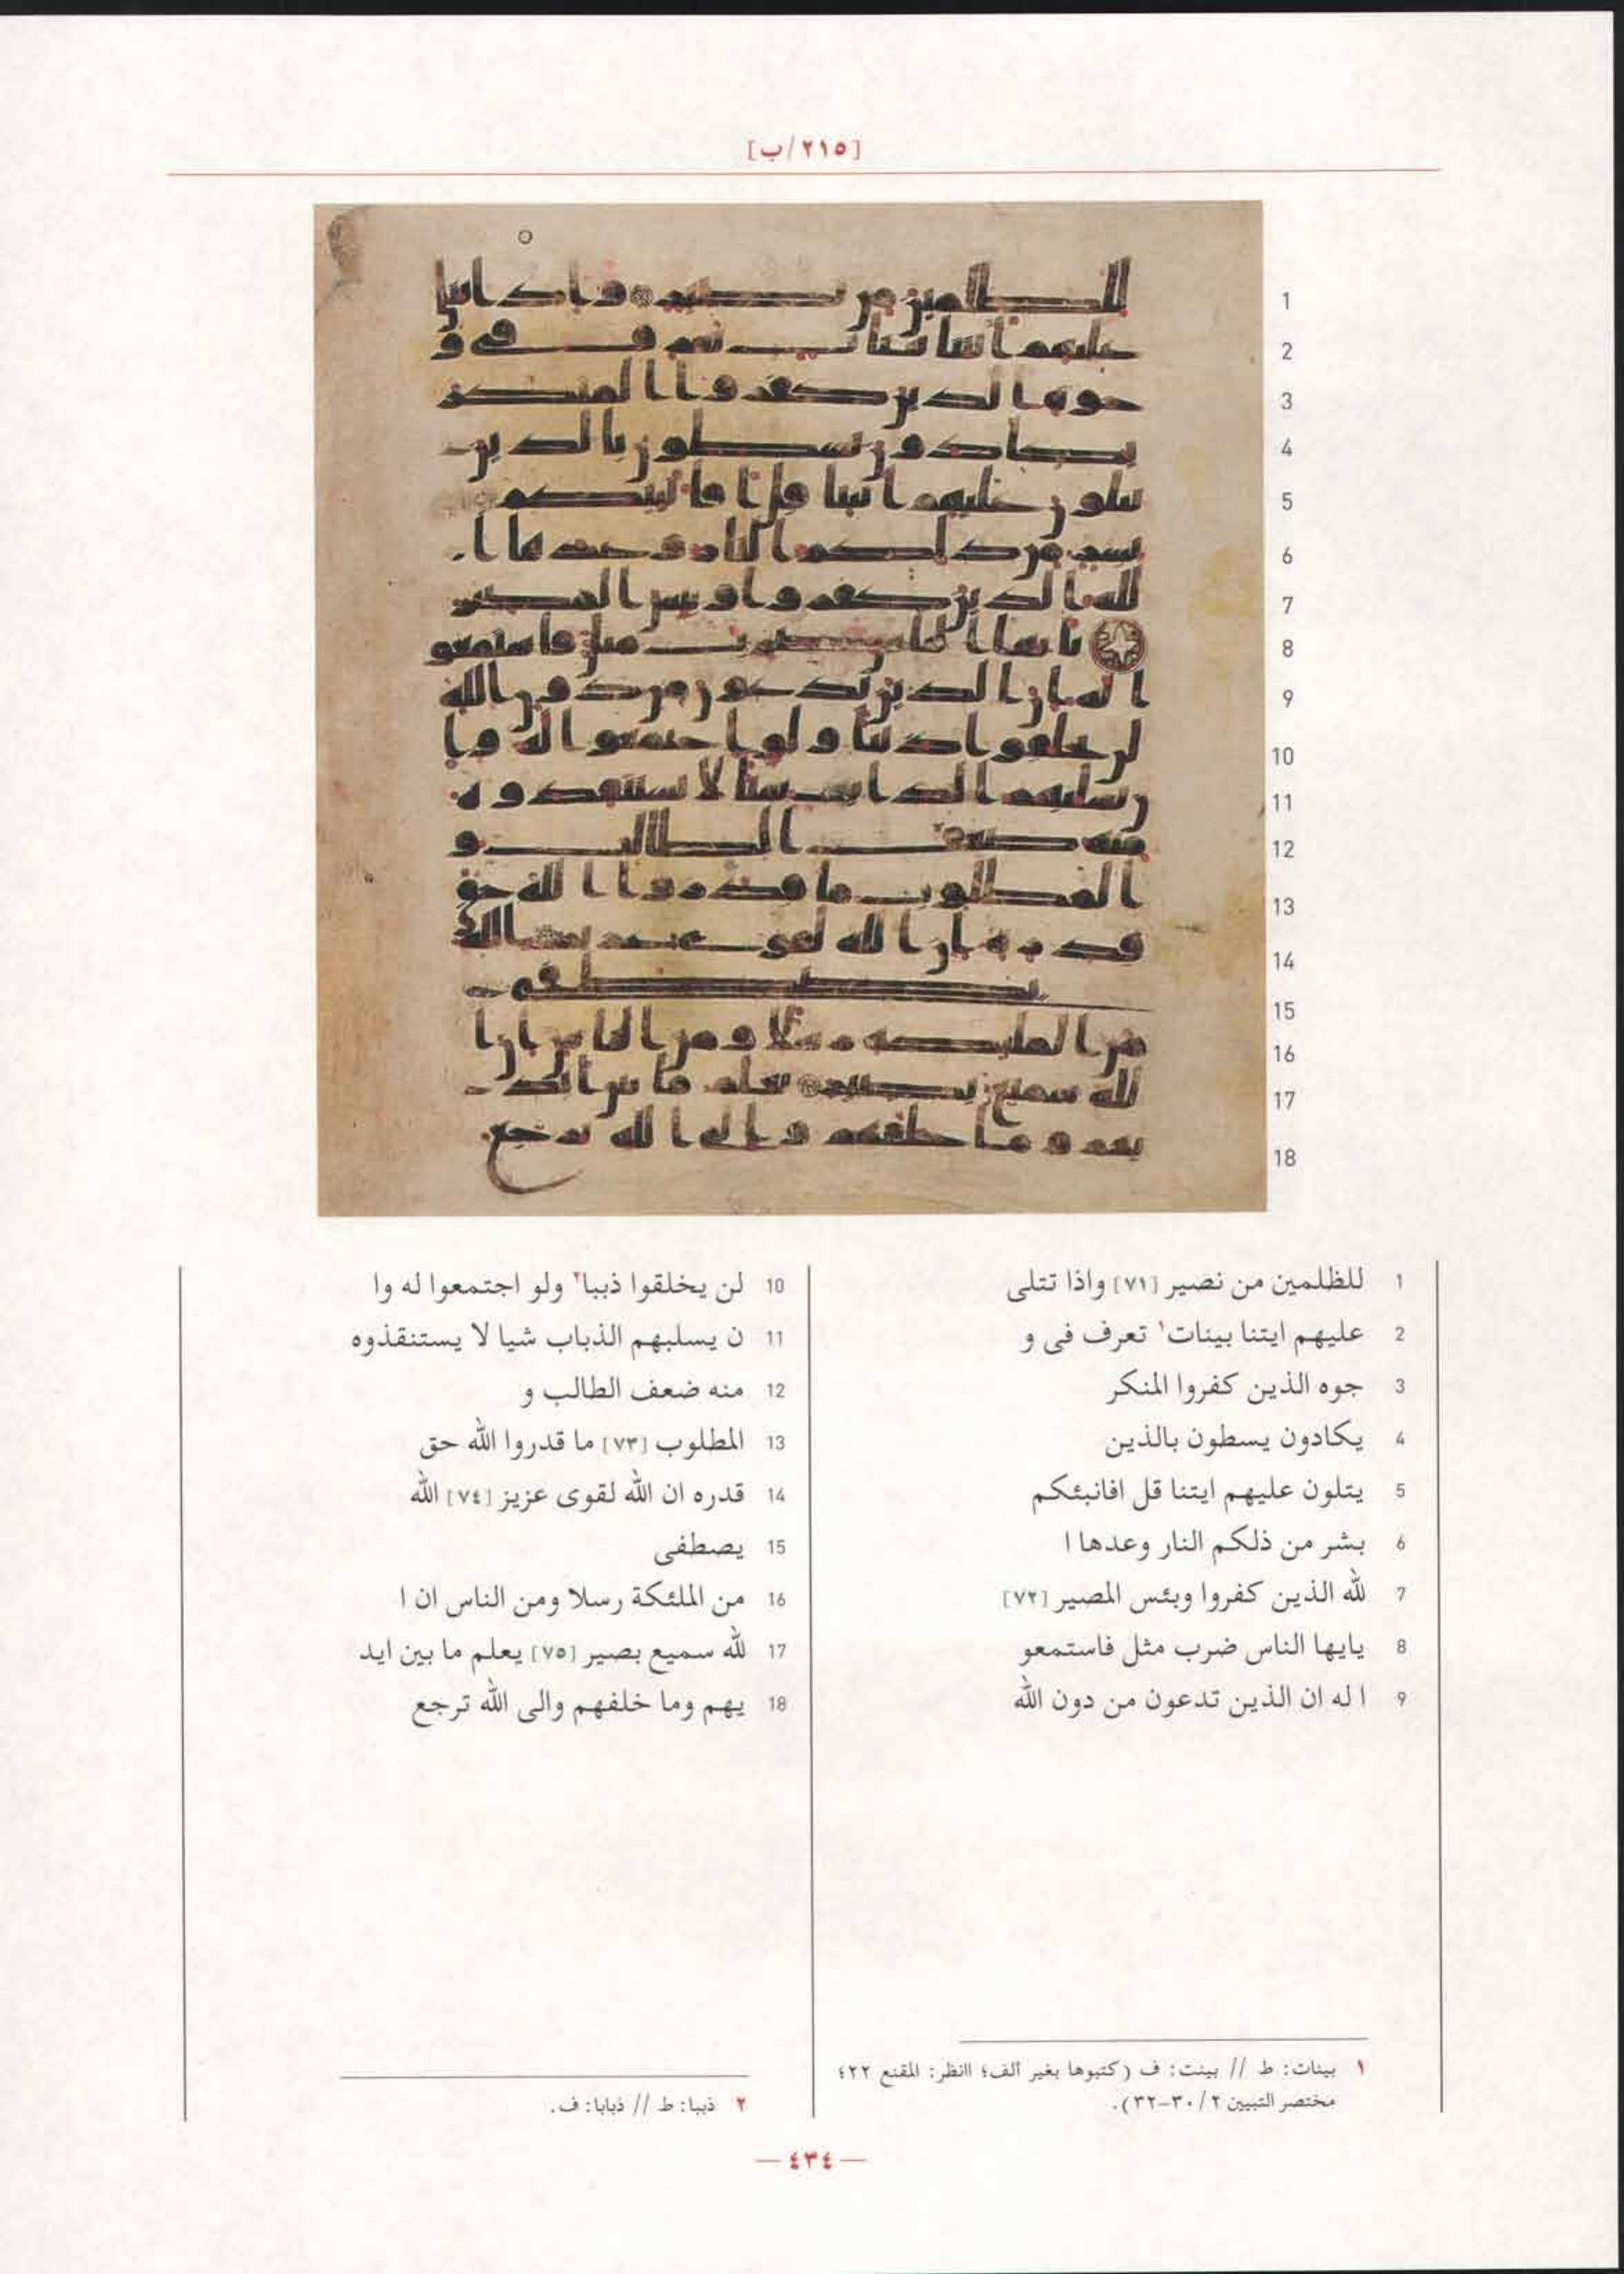 [٢١٥/ب]
1 للظلمين من نصير [٧١] واذا تتلى
2 عليهم ايتنا بينات١ تعرف فى و
3 جوه الذين كفروا المنكر
4 يكادون يسطون بالذين
5 يتلون عليهم ايتنا قل افانبئكم
6 بشر من ذلكم النار وعدها ا
7 لله الذين كفروا وبئس المصير [٧٢]
8 يايها الناس ضرب مثل فاستمعو
9 ا له ان الذين تدعون من دون الله
10 لن يخلقوا ذببا٢ ولو اجتمعوا له وا
11 ن يسلبهم الذباب شيا لا يستنقذوه
12 منه ضعف الطالب و
13 المطلوب [٧٣] ما قدروا الله حق
14 قدره ان الله لقوى عزيز [٧٤] الله
15 يصطفى
16 من الملئكة رسلا ومن الناس ان ا
17 لله سميع بصير [٧٥] يعلم ما بين ايد
18 يهم وما خلفهم والى الله ترجع
١ بينات: ط // بينت: ف (كتبوها بغير ألف؛ اانظر: المقنع ٢٢؛
مختصر التبيين ٢/ ٣٠-٣٢).
٢ ذببا: ط // ذبابا: ف.
— ٤٣٤ —